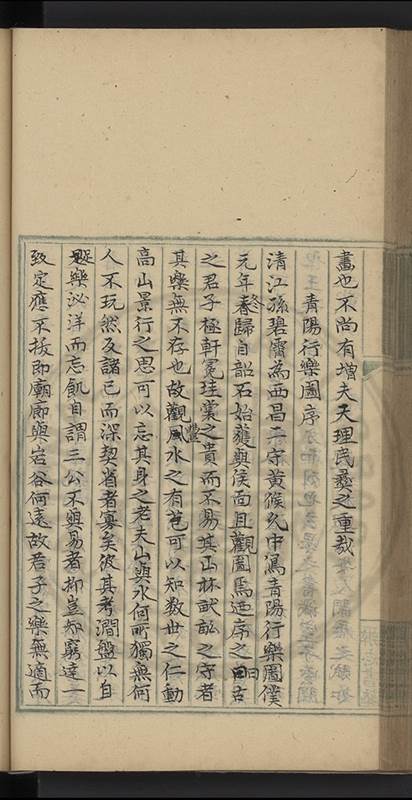 畫也不尚有增夫天理民彝之重哉
青陽行樂圖序
清江孫碧霽為西昌二守黃候允中寫青陽行樂圖僕
元年春終歸自韶石始獲與侯面且觀圖焉迺序之曰古
之君子極軒冕珪裳之貴而不易其山林畎畝之守者
其樂無不存也故觀豐水之有芑可以知数世之仁動
高山景行之思可以忘其身之老夫山與水何所獨無何
人不玩然反諸己而深契省者寡矣彼其考澗盤以自
樂泌洋而忘飢自謂三公不與易者抑豈知窮達一
致定應不拔即廟廊與岩谷何遠故君子之樂無適而